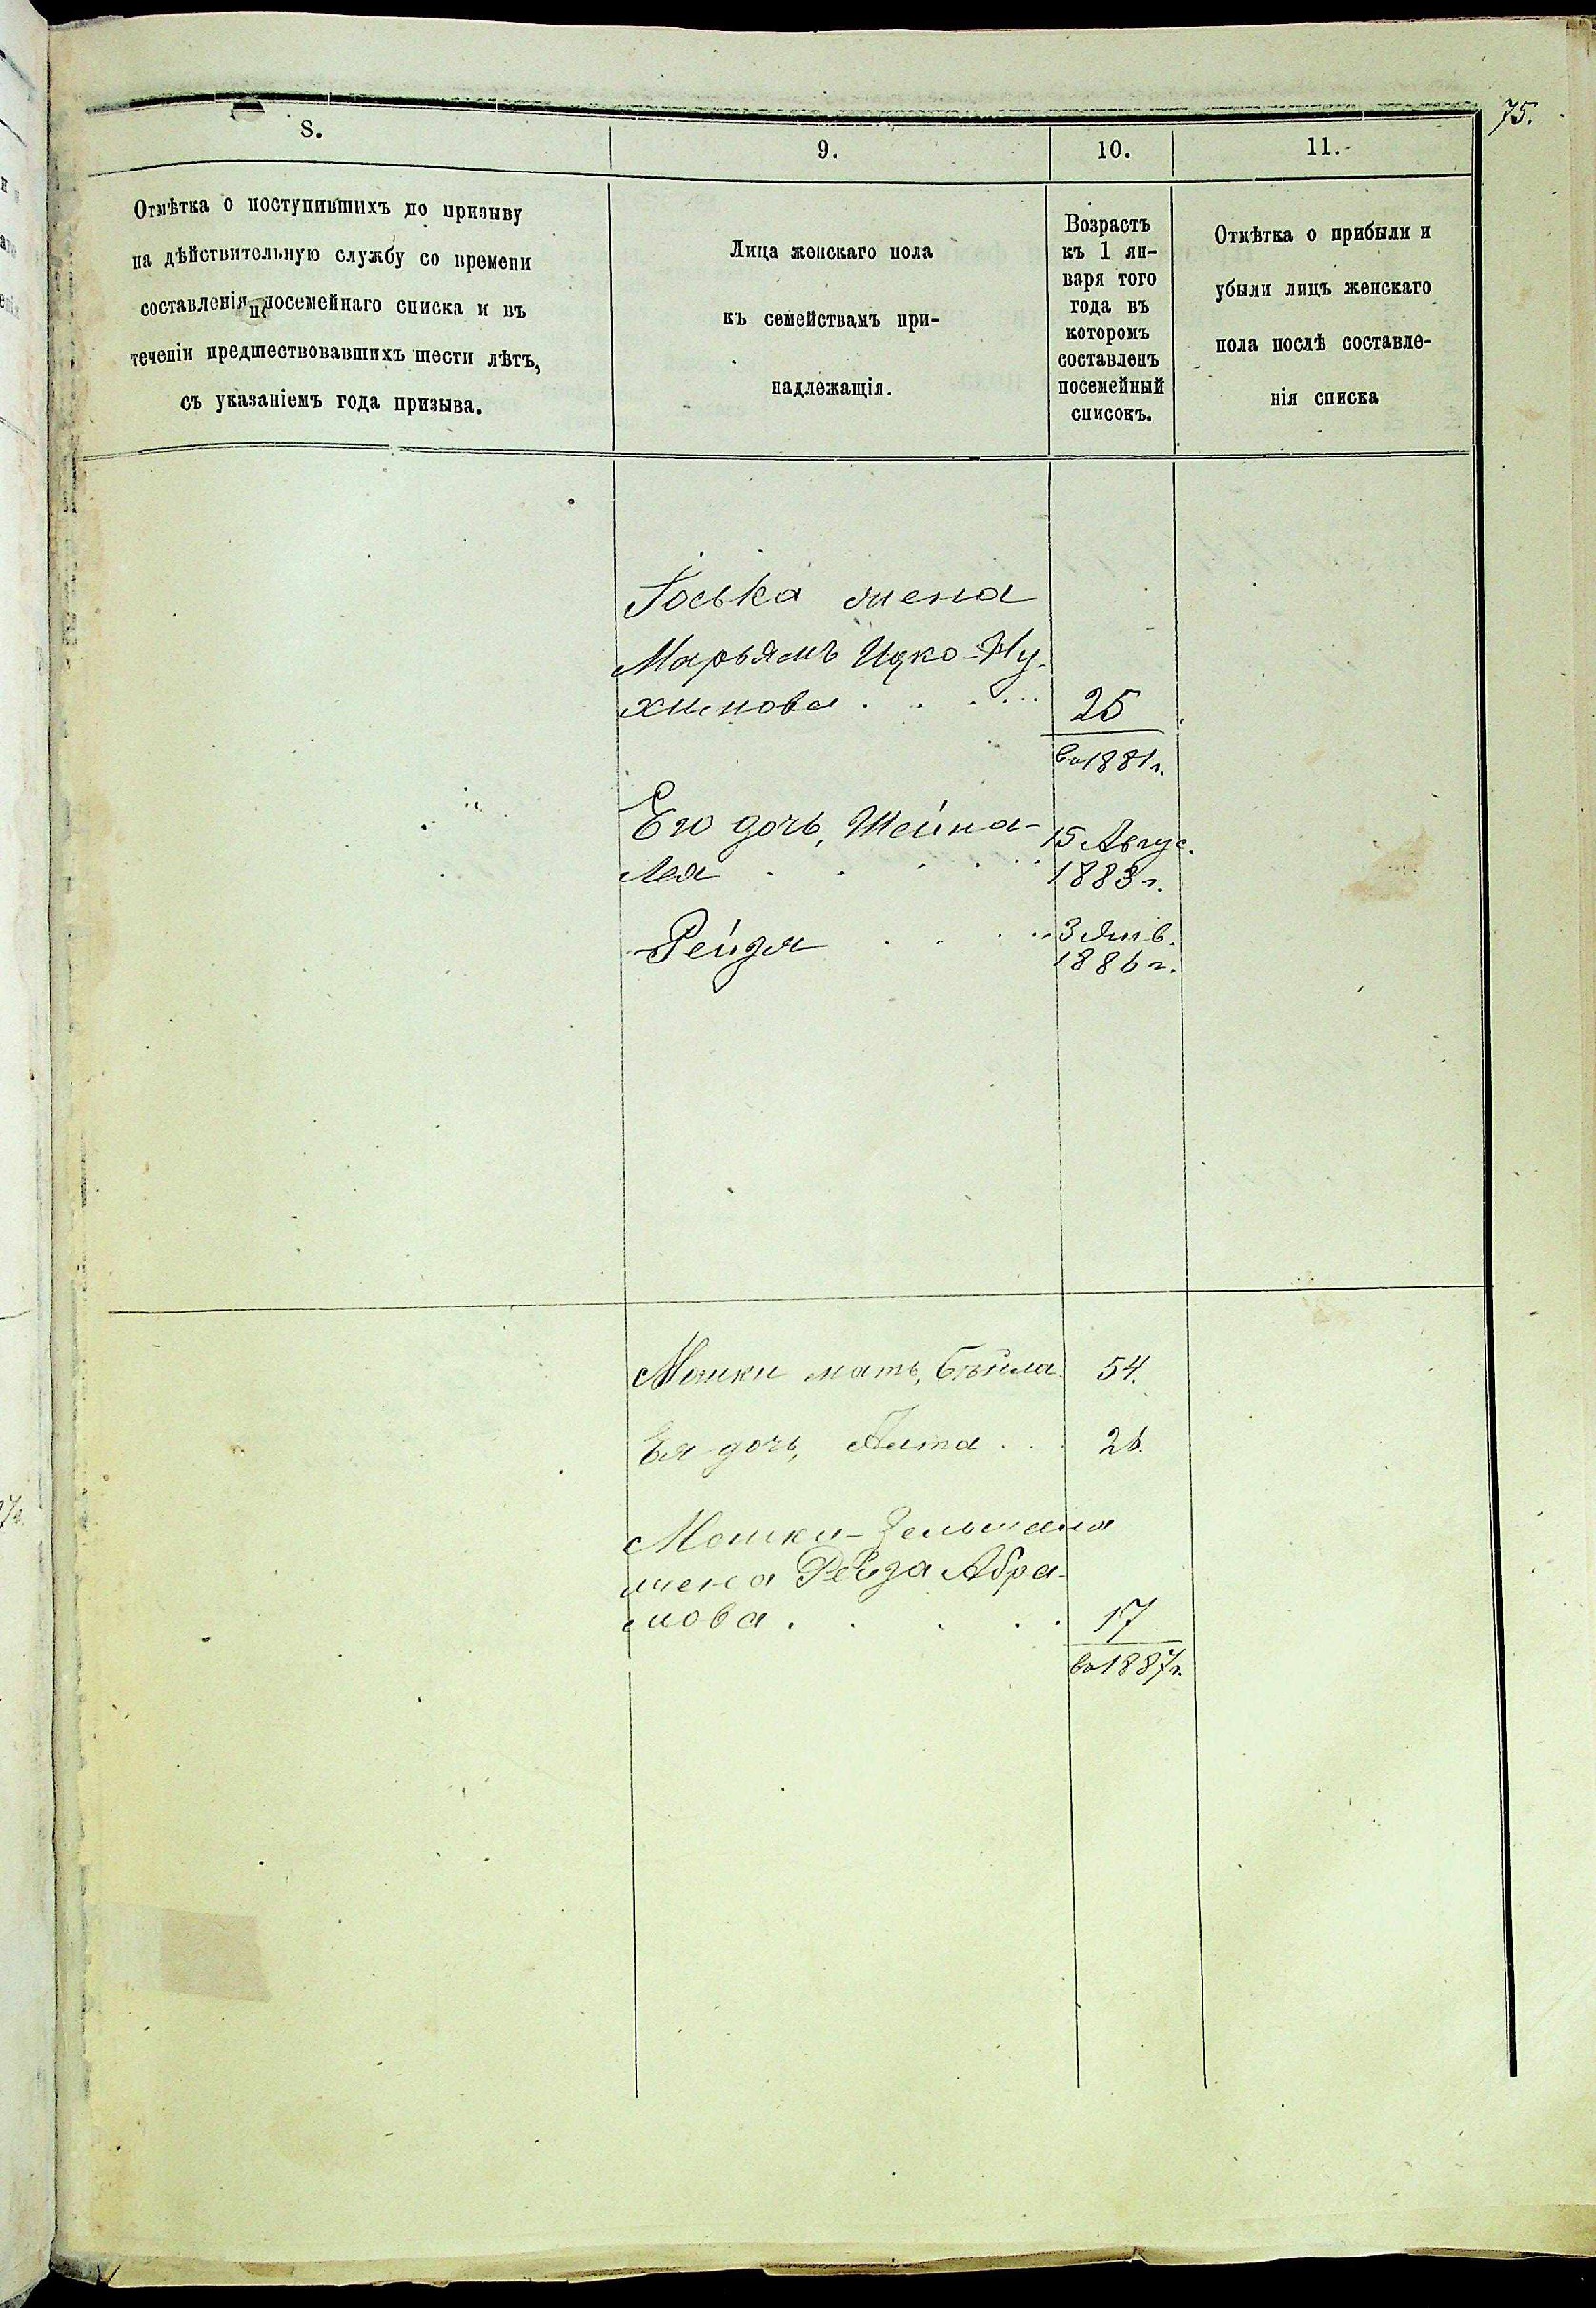 75.
8.
9.
10.
11.
Отмѣтка о поступившихъ по призыву
на дѣйствительную службу со времени
составленія посемейнаго списка и въ
теченіи предшествовавшихъ шести лѣтъ,
съ указаніемъ года призыва.
Лица женскаго пола
къ семействамъ при-
надлежащія.
Возрастъ
къ 1 ян-
варя того
года въ
которомъ
составленъ
посемейный
списокъ.
Отмѣтка о прибыли и
убыли лицъ женскаго
пола послѣ составле-
нія списка
Іоська жена
Марьямъ Ицко-Ну-
химова . . . . 25
во 1881 г.
Его дочь, Шейна- 15 Авгус.
Лея . . . . 1883 г.
Рейзя . . . . 3 Янв.
1886 г.
Мошки мать, Бейла. 54.
Ея дочь, . . . 26.
Мошки-Зельмана
жена Рейза Абра-
мова . . . . . 17
во 1887 г.